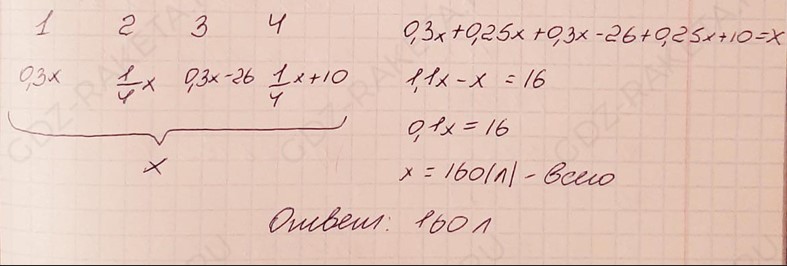 1 2 3 4
0,3x 1/4 x 0,3x-26 1/4 x+10
x
0,3x+0,25x+0,3x-26+0,25x+10=x
1,1x-x = 16
0,1x = 16
x = 160(л) - всего
Ответ: 160 л
GDZ-RAKETA.RU